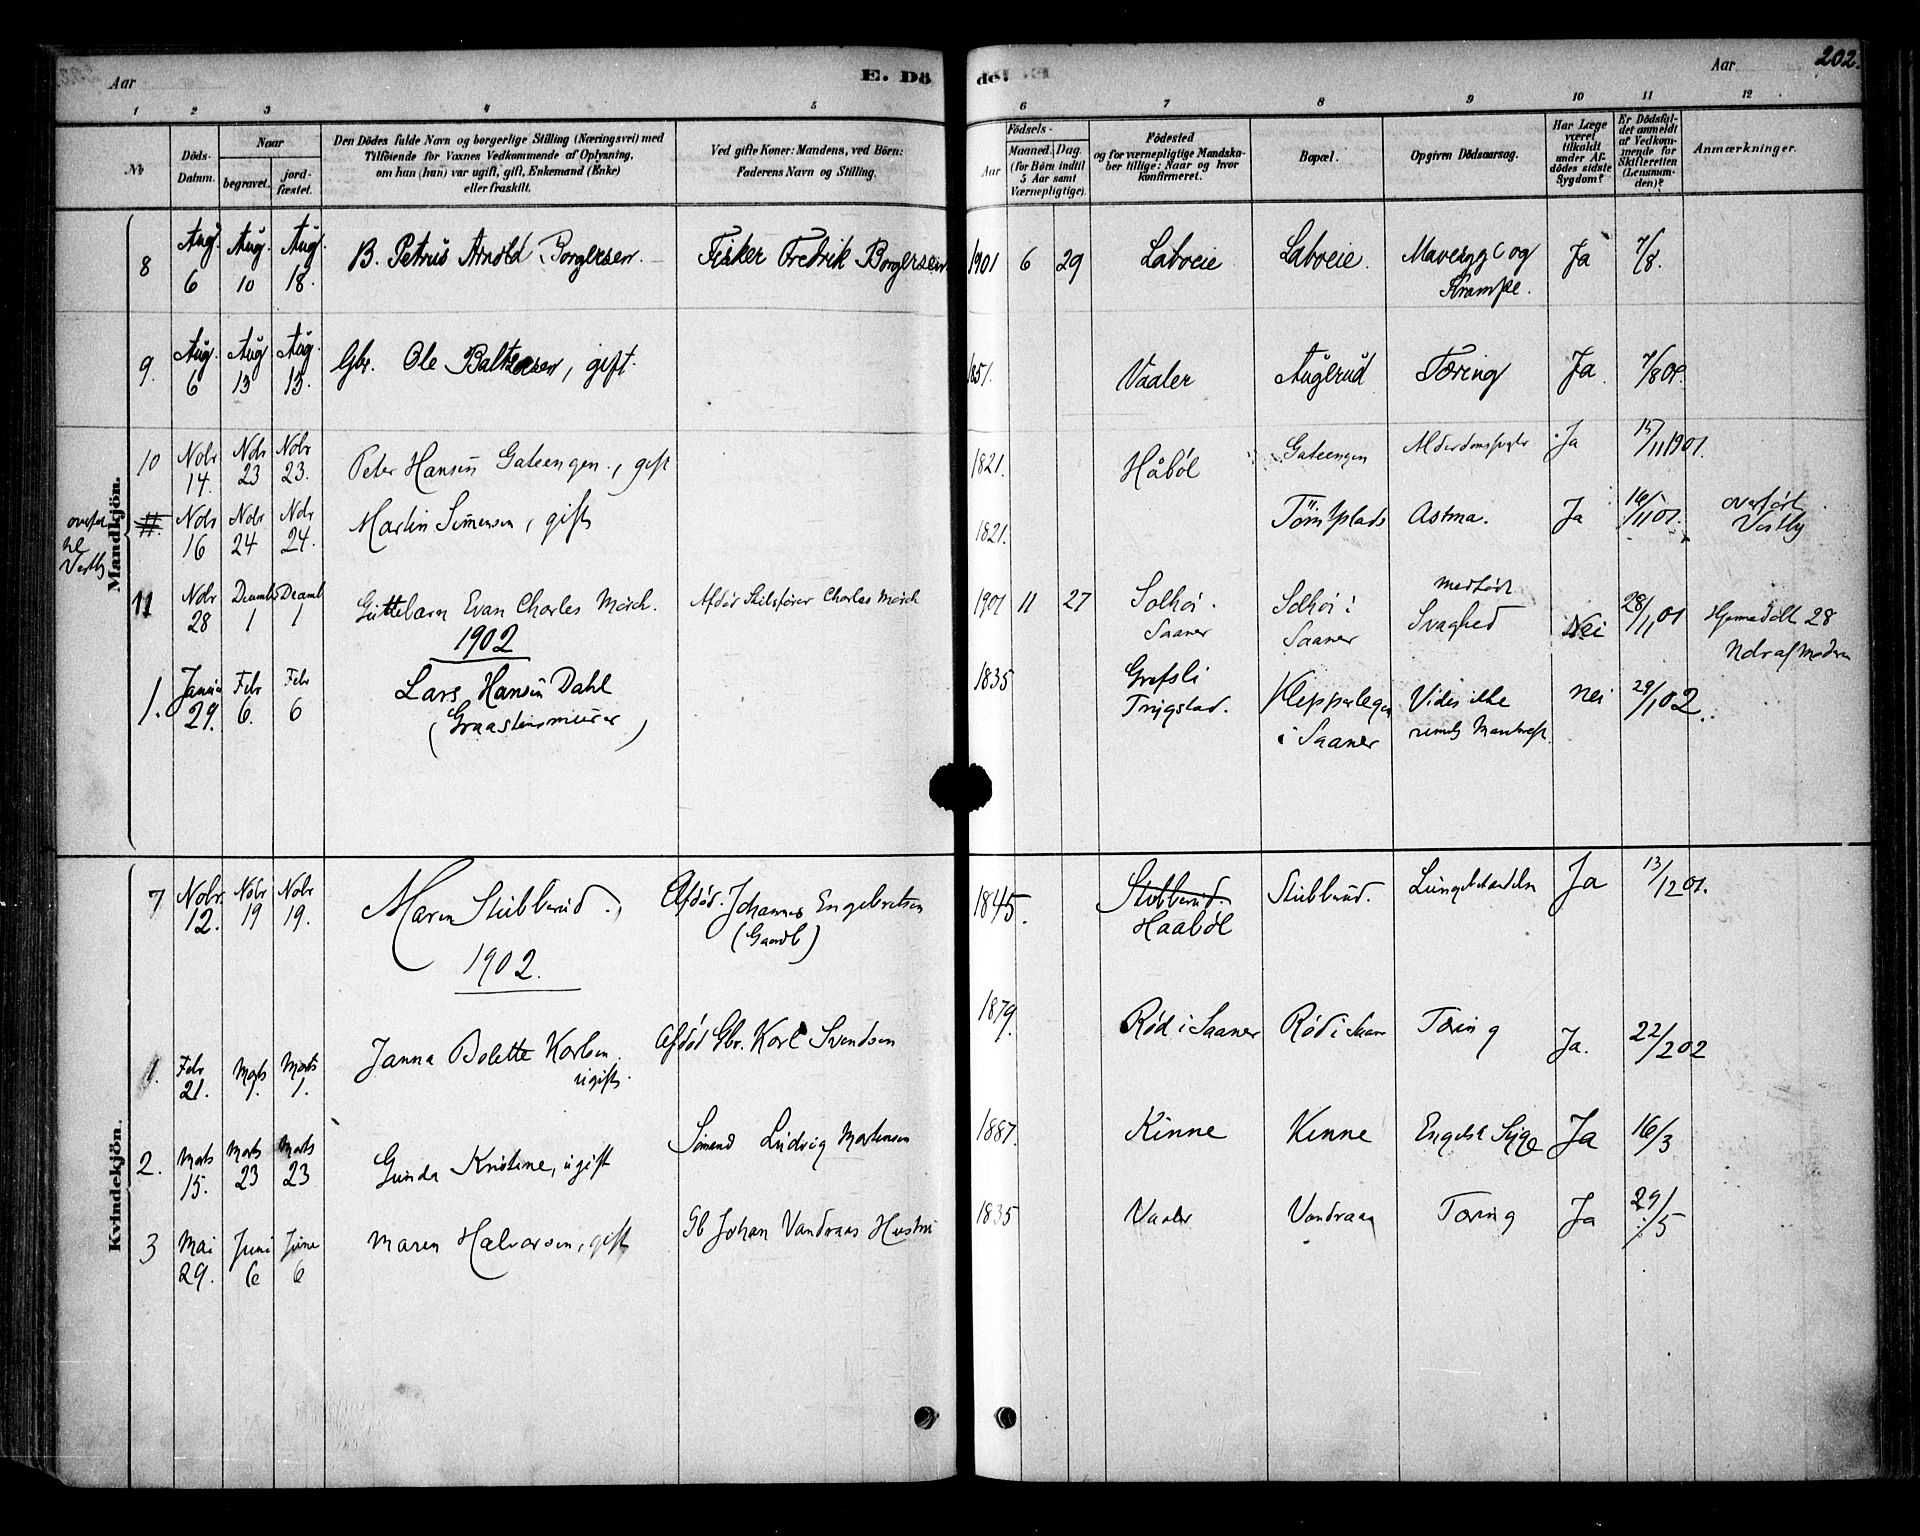 Aar
E. Dö
de.
Aar
202.
1 2 3 4 5 6 7 8 9 10 11 12
№
Döds-Datum.
Naar
begravet.
jord-fæstet.
Den Dödes fulde Navn og borgerlige Stilling (Næringsvei) med
Tilföiende for Voxnes Vedkommende af Oplysning,
om han (hun) var ugift, gift, Enkemand (Enke)
eller fraskilt.
Ved gifte Koner: Mandens, ved Börn:
Faderens Navn og Stilling.
Födsels-
Aar
Maaned. Dag.
(for Börn indtil
5 Aar samt
Værnepligtige).
Födested
og for værnepligtige Mandska-
ber tillige: Naar og hvor
konfirmeret.
Bopæl.
Opgiven Dödsaarsag.
Har Læge
været
tilkaldt
under Af-
dödes sidste
Sygdom?
Er Dödsfal-
det anmeldt
af Vedkom-
mende for
Skifteretten
(Lensman-
den)?
Anmærkninger.
Mandkjön.
8 Aug. 6 Aug. 10 Aug. 18. B. Petrus Arnold Borgersen. Fisker Fredrik Borgersen 1901 6 29 Labveie Labveie. Mavesyge og Krampe. Ja 7/8.
9. Aug. 6 Aug 13 Aug. 13. Gbr. Ole Baltzersen, gift. 1851. Vaaler Augerud Tæring Ja. 7/8 01.
10 Nobr 14. Nobr 23 Nobr 23. Peter Hansen Gateengen., gift 1821. Håböl Gateengen Ja 15/11 1901.
overført til Vestby
11. Nobr 16 Nobr 24 Nobr 24. Martin Simensen, gift 1821. Astma. Ja 16/11 01. overført Vestby
11 Nobr 28 Decembr 1 Decembr 1 Guttebarn Evan Charles Mörch. Afdöd Charles Mörch 1901 11 27 Solhöi. Saaner Solhöi i Saaner medfødt Svaghed Nei 28/11 01 Hjemmedöbt 28 Nobr af Moderen
1902
1. Januar 29. Febr 6. Febr 6 Lars Hansen Dahl
(Graastensmurer)
1835 Grefsli Trygstad. i Saaner Vides ikke nei 29/1 02.
Kvindekjön.
7 Nobr. 12. Nobr 19 Nobr 19. Maren Stubberud., Afdöd. Johannes Engebretsen (Gaardb) 1845. Stubberud. Haaböl Stubberud. Lungebetændelse Ja 13/12 01.
1902.
1. Febr 21. Marts 1. Marts 1. Janna Bolette Karlsen. ugift. Afdöd Gbr. Karl Svendsen 1879. Röd i Saaner Röd i Saan Tæring Ja. 22/2 02
2. Marts 15. Marts 23 Marts 23 Gunda Kristine, ugift Sömand Ludvig Martensen 1887. Kinne Kinne Engelsk Syge Ja 16/3
3 Mai 29. Juni 6 June 6 Maren Halvorsen, gift Gb Johan Vandraas Hustru 1835 Vaaler Vandraas Tæring Ja 29/5